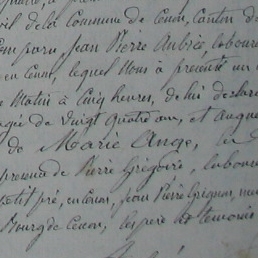 de la Commune de Cenon, Canton de
Comparu, Jean Pierre Aubrie, laboure
en Cenon, lequel Nous à présenté un
Matin à Cinq heures, de lui déclara
agée de Vaigt quatre ans, et auque
de Marie Ange,
presence de Pierre Grégoire, labour
petit pré, en Cenon, Jean Pierre
Bourg de Cenon, les pere et temoins